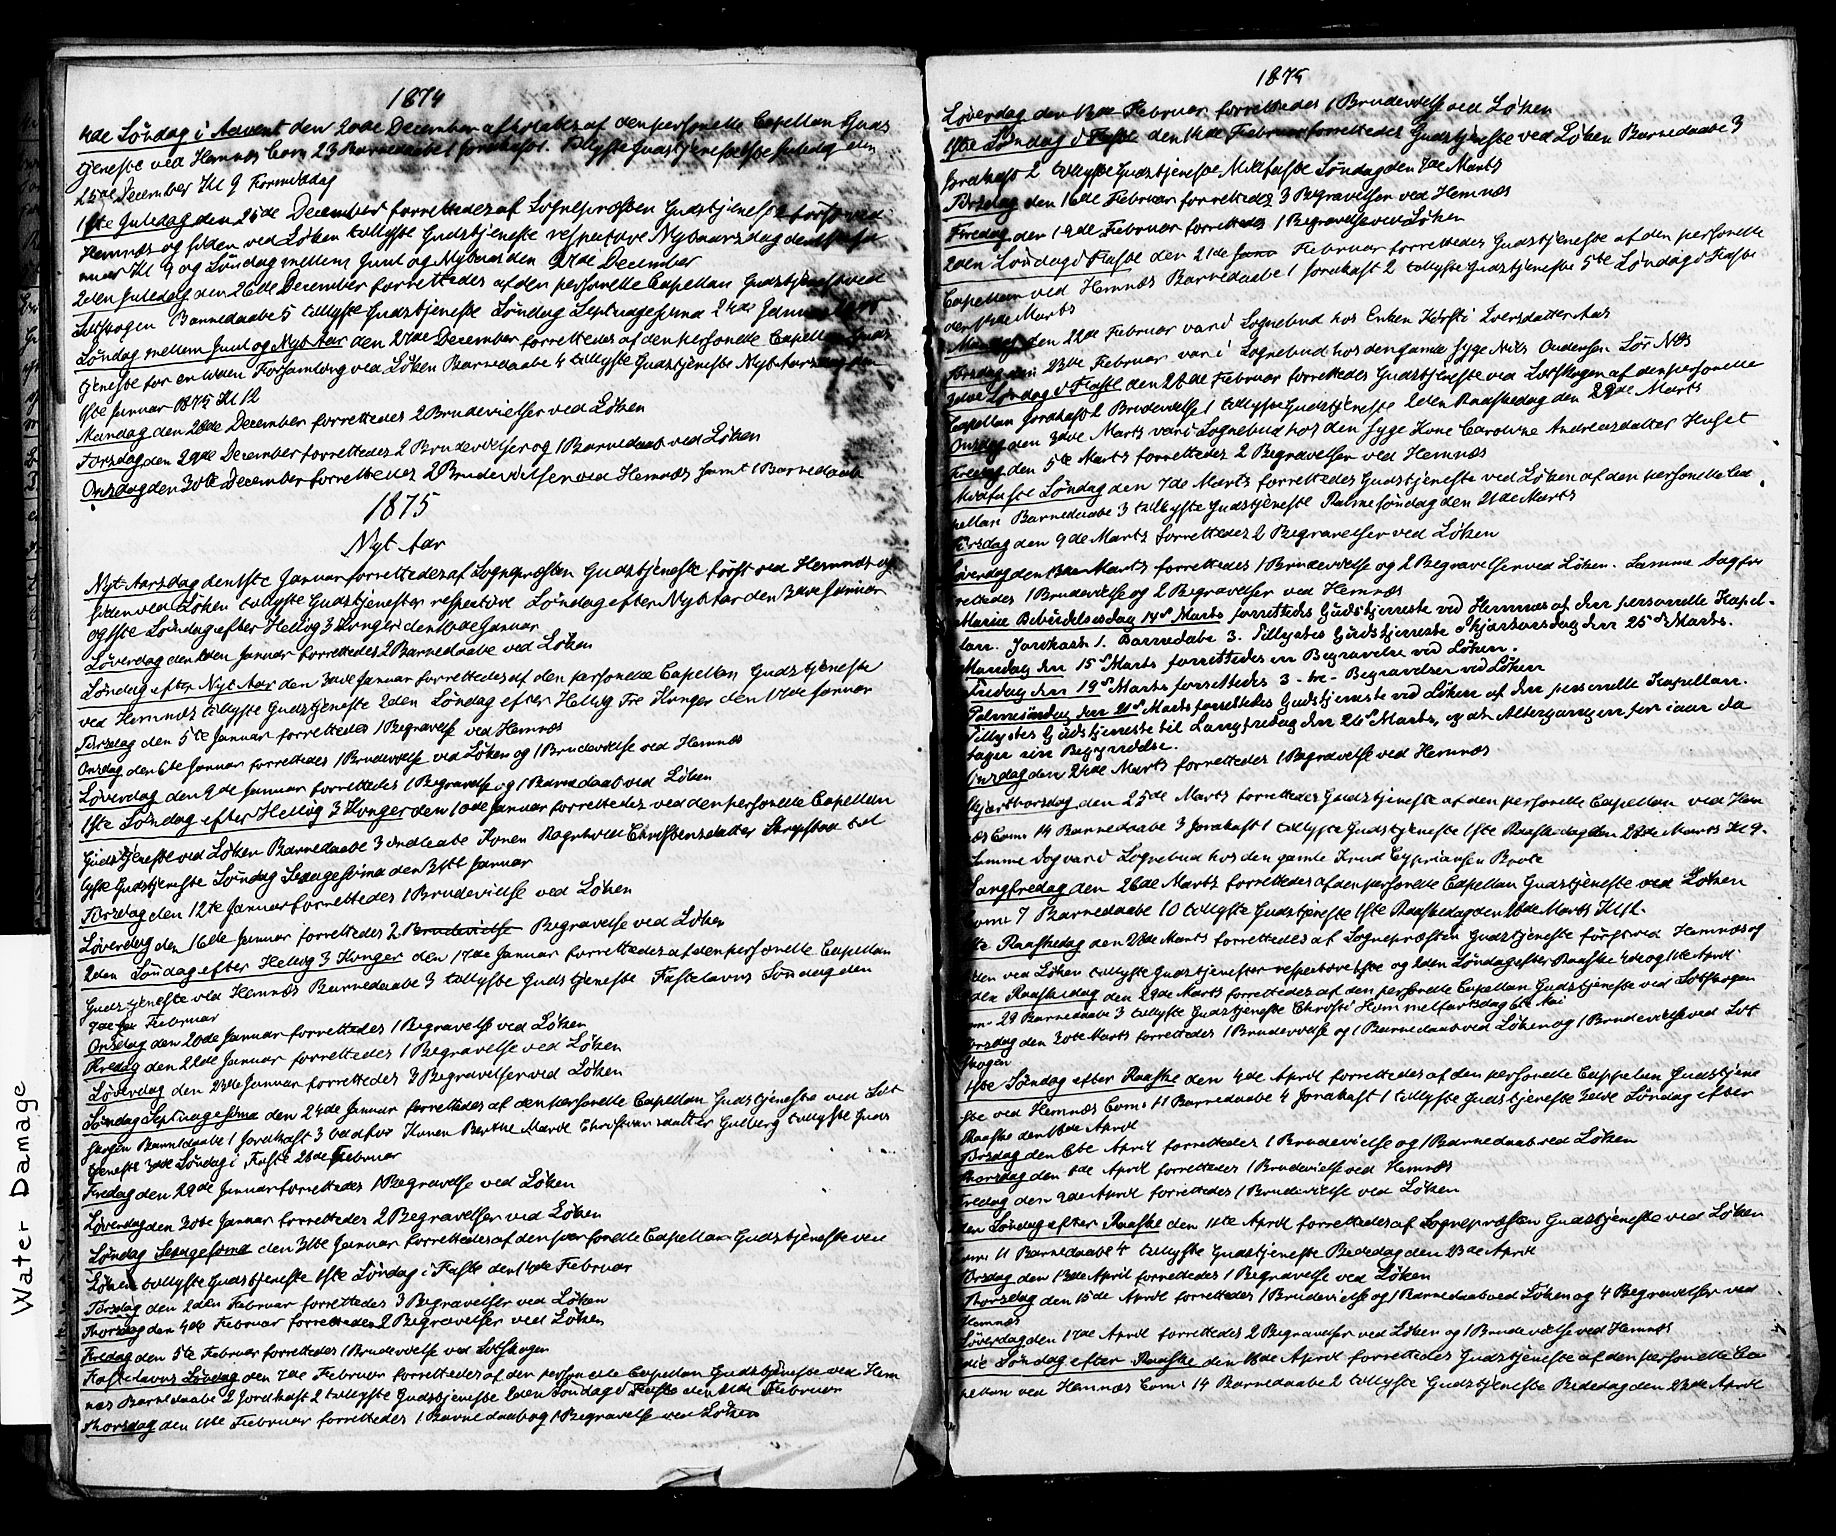 Water Damage
1874
4de Söndag i Advent den 20de December afholdtes af den personelle Capellan Guds
tjeneste ved Hemnæs Com 23 Barnedaabe 1 Jordkast 1. tillyste Gudstjeneste Juledag den
25de December Kl 9 Formiddag
1ste Juledag den 25de December forrettedes af Sognepræsten Gudstjeneste först ved
Hemnæs og siden ved Löken tillyste Gudstjeneste respective Nytaarsdag den 1ste Ja
nuar Kl 9 og Söndag mellem Juul og Nytaar den 27de December
2den Juledag den 26de December forrettedes af den personelle Capellan Gudstjeneste ved
Setskogen Barnedaabe 5 tillyste Gudstjeneste Söndag Septuagesima 24de Januar 1875
Söndag mellem Juul og Nyt Aar den 27de December forrettedes af den personelle Capellan Guds
tjeneste for en liden Forsamling ved Löken Barnedaabe 4 tillyste Gudstjeneste Nyt Aarsdag den
1ste Januar 1875 Kl 12
Mandag den 28de December forrettedes 2 Brudevielser ved Löken
Torsdag den 29de December forrettedes 2 Brudevielser og 1 Barnedaab ved Löken
Onsdag den 30te December forrettedes 2 Brudevielser ved Hemnæs samt 1 Barnedaab
1875
Nyt Aar
Nyt Aarsdag den 1ste Januar forrettedes af Sognepræsten Gudstjeneste först ved Hemnæs og
siden ved Löken tillyste Gudstjenester respective Söndag efter Nyt Aar den 3die Januar
og 1ste Söndag efter Hellig 3 Konger den 10de Januar
Löverdag den 2den Januar forrettedes 2 Barnedaabe ved Löken
Söndag efter Nyt Aar den 3die Januar forrettedes af den personelle Capellan Gudstjeneste
ved Hemnæs tillyste Gudstjeneste 2den Söndag efter Hellig Tre Konger den 17de Januar
Torsdag den 5te Januar forrettedes 1 Begravelse ved Hemnæs
Onsdag den 6te Januar forrettedes 1 Brudevielse ved Löken og 1 Brudevielse ved Hemnæs
Löverdag den 9de Januar forrettedes 1 Begravelse og 1 Barnedaab ved Löken
1ste Söndag efter Hellig 3 Konger den 10de Januar forrettedes ved den personelle Capellan
Gudstjeneste ved Löken Barnedaabe 3 indledte Konen Ragnhild Christensdatter til
lyste Gudstjeneste Söndag Sexagesima den 31te Januar
Torsdag den 12te Januar forrettedes 1 Brudevielse ved Löken
Löverdag den 16de Januar forrettedes 2 Brudevielse Begravelse ved Löken
2den Söndag efter Hellig 3 Konger den 17de Januar forrettedes af den personelle Capellan
Gudstjeneste ved Hemnæs Barnedaabe 3 tillyste Gudstjeneste Fastelavns Söndag den
7de Februar
Onsdag den 20de Januar forrettedes 1 Begravelse ved Löken
Fredag den 22de Januar forrettedes 1 Begravelse ved Löken
Löverdag den 23de Januar forrettedes 3 Begravelser ved Löken
Söndag Septuagesima den 24de Januar forrettedes af den personelle Capellan Gudstjeneste ved Set
skogen Barnedaabe 1 Jordkast 3 Konen Berthe Marie Christiansdatter tillyste Guds
tjeneste 3die Söndag i Faste 28de Februar
Fredag den 29de Januar forrettedes 1 Begravelse ved Löken
Löverdag den 30te Januar forrettedes 2 Begravelser ved Löken
Söndag Sexagesima den 31te Januar forrettedes af den personelle Capellan Gudstjeneste ved
Löken tillyste Gudstjeneste 1ste Söndag i Faste den 14de Februar
Torsdag den 2den Februar forrettedes 3 Begravelser ved Löken
Thorsdag den 4de Februar forrettedes 2 Begravelser ved Löken
Fredag den 5te Februar forrettedes 1 Brudevielse ved Setskogen
Fastelavns Söndag den 7de Februar forrettedes af den personelle Capellan Gudstjeneste ved Hem
næs Barnedaabe 2 Jordkast 2 tillyste Gudstjeneste 2den Söndag i Faste den 21de Februar
Thorsdag den 11te Februar forrettedes 1 Barnedaab og 1 Begravelse ved Löken
1875
Löverdag den 13de Februar forrettedes 1 Brudevielse ved Löken
1ste Söndag i Faste den 14de Februar forrettedes Gudstjeneste ved Löken Barnedaabe 3
Jordkast 2 tillyste Gudstjeneste Midfaste Söndag den 7de Marts
Torsdag den 16de Februar forrettedes 3 Begravelser ved Hemnæs
Fredag den 19de Februar forrettedes 1 Begravelse ved Löken
2den Söndag i Faste den 21de Februar forrettedes Gudstjeneste af den personelle
Capellan ved Hemnæs Barnedaabe 1 Jordkast 2 tillyste Gudstjeneste 5te Söndag i Faste
den 14de Marts
Mandag den 22de Februar var i Sognebud hos Enken Kirsti Iversdatter Aas
Torsdag den 23de Februar var i Sognebud hos den gamle syge Nils Andersen Sör Næs
3die Söndag i Faste den 28de Februar forrettedes Gudstjeneste ved Setskogen af den personelle
Capellan Jordkast 2 Brudevielse 1 tillyste Gudstjeneste 2den Paaskedag den 29de Marts
Onsdag den 3die Marts var i Sognebud hos den syge Kone Caroline Andreasdatter Huset
Fredag den 5te Marts forrettedes 2 Begravelser ved Hemnæs
Midfaste Söndag den 7de Marts forrettedes Gudstjeneste ved Löken af den personelle Ca
pellan Barnedaabe 3 tillyste Gudstjeneste Palmesöndag den 21de Marts
Torsdag den 9de Marts forrettedes 2 Begravelser ved Löken
Löverdag den 13de Marts forrettedes 1 Brudevielse og 2 Begravelser ved Löken. Samme Dag for
rettedes 1 Brudevielse og 2 Begravelser ved Hemnæs
Mariæ Bebudelsesdag 14de Marts forrettedes Gudstjeneste ved Hemnæs af den personelle Kapel-
lan. Jordkast 1. Barnedaabe 3. Tillystes Gudstjeneste Skjærtorsdag den 25de Marts.
Mandag den 15de Marts forrettedes en Begravelse ved Löken.
Fredag den 19de Marts forrettedes 3 - tre - Begravelser ved Löken
Palmesöndag den 21de Marts forrettedes Gudstjeneste ved Löken af den personelle Kapellan.
Tillystes Gudstjeneste til Langfredag den 26de Marts, og at Altergangen for iaar da
tager sin Begyndelse.
Onsdag den 24de Marts forrettedes 1 Begravelse ved Hemnæs
Skjærthorsdag den 25de Marts forrettedes Gudstjeneste af den personelle Capellan ved Hem
næs Com: 14 Barnedaabe 3 Jordkast 1 tillyste Gudstjeneste 1ste Paaskedag den 28de Marts Kl 9.
Samme Dag var i Sognebud hos den gamle Knud Cypriansen Braate
Langfredag den 26de Marts forrettedes af den personelle Capellan Gudstjeneste ved Löken
Com: 7 Barnedaabe 10 tillyste Gudstjeneste 1ste Paaskedag den 28de Marts Kl 12.
1ste Paaskedag den 28de Marts forrettedes af Sognepræsten Gudstjeneste först ved Hemnæs og
siden ved Löken tillyste Gudstjenester respective 1ste og 2den Söndag efter Paaske 4de og 11te April
2den Paaskedag den 29de Marts forrettedes af den personelle Capellan Gudstjeneste ved Setskogen
Com: 29 Barnedaabe 3 tillyste Gudstjeneste Christi Himmelfartsdag 6te Mai
Torsdag den 30te Marts forrettedes 1 Brudevielse og 1 Barnedaab ved Löken og 1 Brudevielse ved Set
skogen
1ste Söndag efter Paaske den 4de April forrettedes af den personelle Cappelan Gudstjene
ste ved Hemnæs Com: 11 Barnedaabe 4 Jordkast 1 tillyste Gudstjeneste 3die Söndag efter
Paaske den 18de April
Torsdag den 6te April forrettedes 1 Brudevielse og 1 Barnedaab ved Löken
Thorsdag den 8de April forrettedes 1 Brudevielse ved Hemnæs
Fredag den 9de April forrettedes 1 Brudevielse ved Löken
2den Söndag efter Paaske den 11te April forrettedes af Sognepræsten Gudstjeneste ved Löken
Com: 11 Barnedaabe 4 tillyste Gudstjeneste Bededag den 23de April
Torsdag den 13de April forrettedes 1 Begravelse ved Löken
Thorsdag den 15de April forrettedes 1 Brudevielse og 1 Barnedaab ved Löken og 4 Begravelser ved
Hemnæs
Löverdag den 17de April forrettedes 2 Begravelser ved Löken og 1 Brudevielse ved Hemnæs
3die Söndag efter Paaske den 18de April forrettedes Gudstjeneste af den personelle Ca
pellan ved Hemnæs Com: 14 Barnedaabe 2 tillyste Gudstjeneste Bededag den 23de April